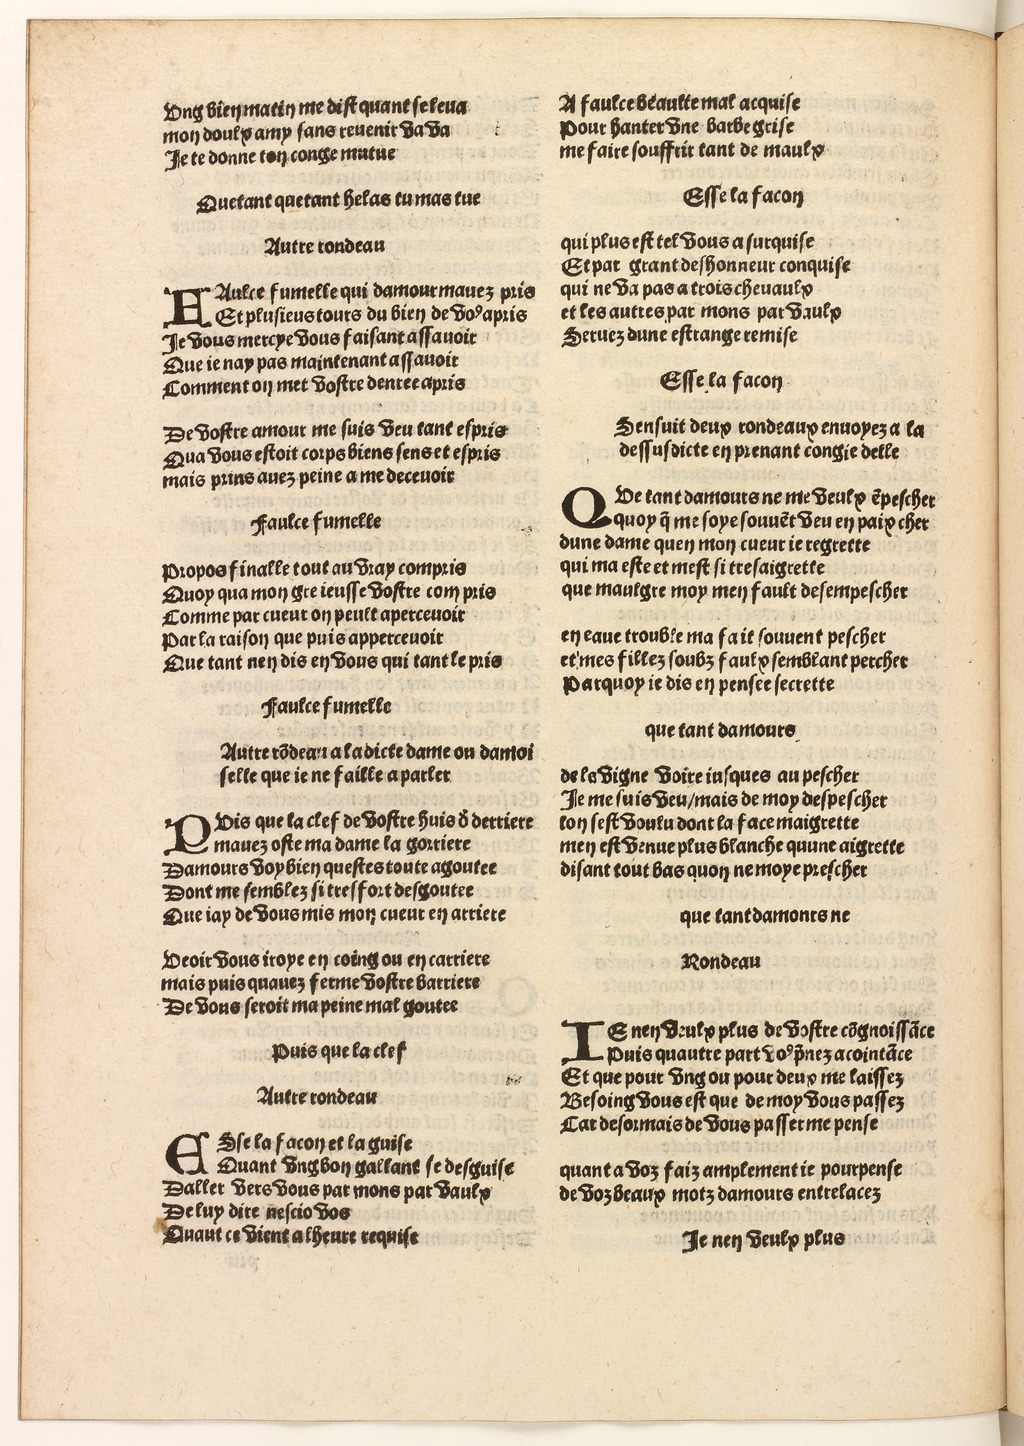 Vng bien matin me dist quant se leua
mon doulx amy sans reuenir va va
Je te donne ton conge mutue
Quetant quetant helas tu mas tue
Autre rondeau
FAulce fumelle qui damour mauez pris
Et plusieus tours du bien de voꝰ apris
Je vous mercye vous faisant assauoir
Que ie nay pas maintenant assauoir
Comment on met vostre dentee apris
De vostre amour me suis veu tant espris
Qua vous estoit corps biens sens et espris
mais prins auez peine a me deceuoir
Faulce fumelle
Propos finalle tout au vray compris
Quoy qua mon gre ieusse vostre com pris
Comme par cueur on peult aperceuoir
Par la raison que puis apperceuoir
Que tant nen dis en vous qui tant le pris
Faulce fumelle
Autre rõdeau a la dicte dame ou damoi
selle que ie ne faille a parler
PVis que la clef de vostre huis d̄ derriere
mauez oste ma dame la gorriere
Damours voy bien questes toute agoutee
Dont me semblez si tres fort desgoutee
Que iay de vous mis mon cueur en arriere
Veoir vous iroye en coing ou en carriere
mais puis quauez ferme vostre barriere
De vous seroit ma peine mal goutee
Puis que la clef
Autre rondeau
ESse la facon et la guise
Quant vng bon gallant se desguise
Daller vers vous par mons par vaulx
De luy dire nescio vos
Quant ce vient a lheure requise
A faulce beaulte mal acquise
Pour hanter vne barbe grise
me faire souffrir tant de maulx
Esse la facon
qui plus est tel vous a surquise
Et par grant deshonneur conquise
qui ne va pas a trois cheuaulx
et les autres par mons par vaulx
Seruez dune estrange remise
Esse la facon
Sensuit deux rondeaux enuoyez a la
dessusdicte en prenant congie delle
QVe tant damours ne me veulx ẽpescher
quoy q̃ me soye souuẽt veu en paix cher
dune dame quen mon cueur ie regrette
qui ma este et mest si tresaigrette
que maulgre moy men fault desempescher
en eaue trouble ma fait souuent pescher
et mes fillez soubz faulx semblant percher
Parquoy ie dis en pensee secrette
que tant damours
de la vigne voire iusques au pescher
Je me suis veu/mais de moy despescher
lon sest voulu dont la face maigrette
men est venue plus blanche quune aigrette
disant tout bas quon ne moye prescher
que tant damonrs ne
Rondeau
IE nen veulx plus de vostre cõgnoissãce
Puis quautre part voꝰ p̃nez acointãce
Et que pour vng ou pour deux me laissez
Besoing vous est que de moy vous passez
Car desormais de vous passer me pense
quant a voz faiz amplement ie pourpense
de voz beaux motz damours entrelacez
Je nen veulx plus